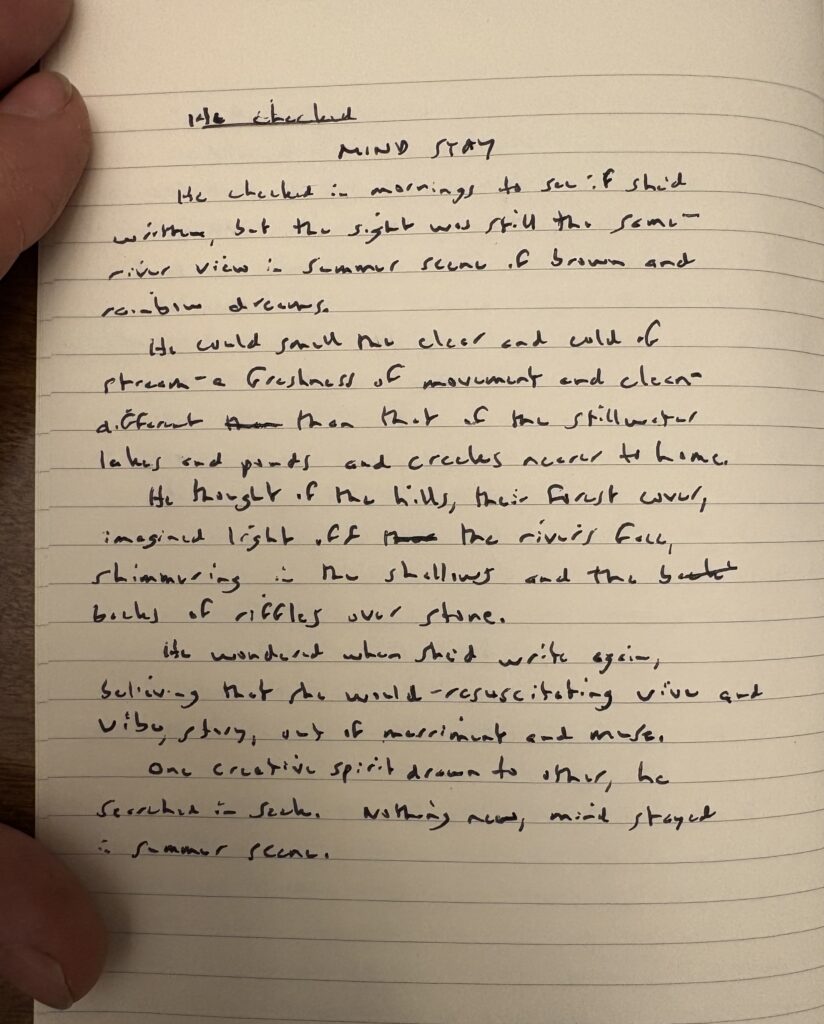 He checked
MIND STAY
He checked in mornings to see if she'd
written, but the sight was still the same-
river view in summer scene of brown and
rainbow dreams.
He could smell the clear and cold of
stream-a freshness of movement and clean-
different than that of the stillwater
lakes and ponds and creeks nearer to home.
He thought of the hills, their forest cover,
imagined light off the river's face,
shimmering in the shallows and the
backs of riffles over stone.
He wondered when she'd write again,
believing that she would-resuscitating vive and
vibe, story, out of merriment and muse.
One creative spirit drawn to other, he
searched in seek. Nothing new, mind stayed
in summer scene.